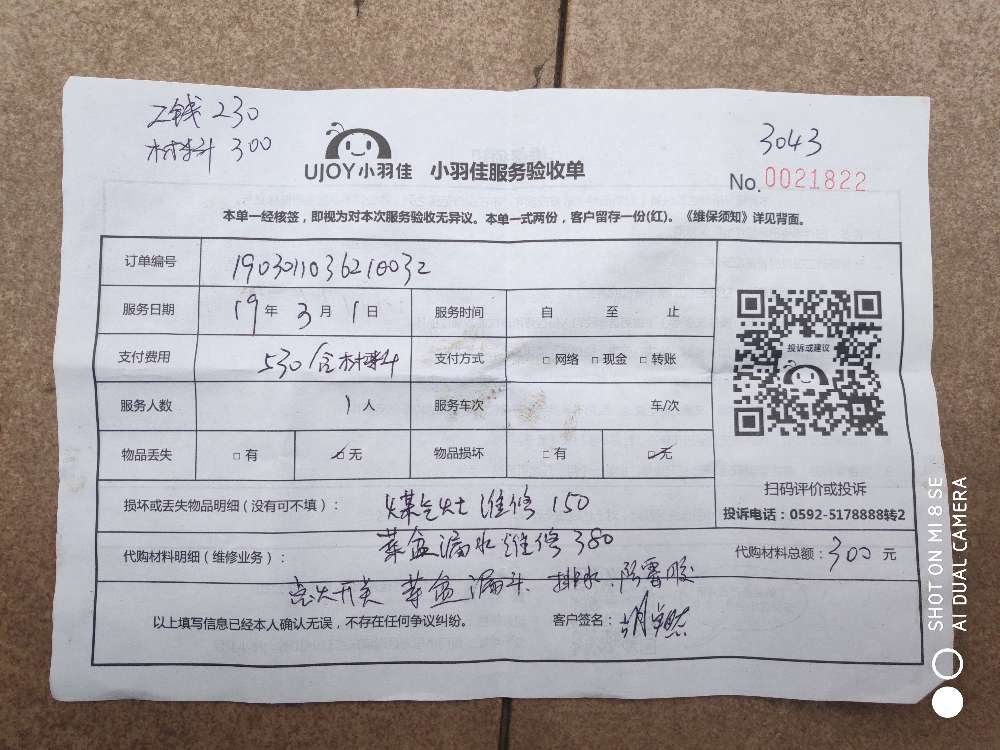 工钱 230
材料 300
3043
UJOY小羽佳 小羽佳服务验收单
No.0021822
本单一经核签，即视为对本次服务验收无异议。本单一式两份，客户留存一份(红)。《维保须知》详见背面。
订单编号 190301103621
服务日期 19年 3月 1日 服务时间 自 至 止
支付费用 530 含材料 支付方式 □ 网络 □ 现金 □ 转账
投诉或建议
服务人数 1 人 服务车次 车/次
物品丢失 □ 有 □ 无 物品损坏 □ 有 □ 无
扫码评价或投诉
投诉电话：0592-5178888转2
损坏或丢失物品明细（没有可不填）： 煤气灶维修 150
菜盆漏水维修 380
代购材料明细（维修业务）： 代购材料总额：300 元
点火开关 菜盆漏斗 排水 防霉胶
以上填写信息已经本人确认无误，不存在任何争议纠纷。 客户签名：
SHOT ON MI 8 SE
AI DUAL CAMERA